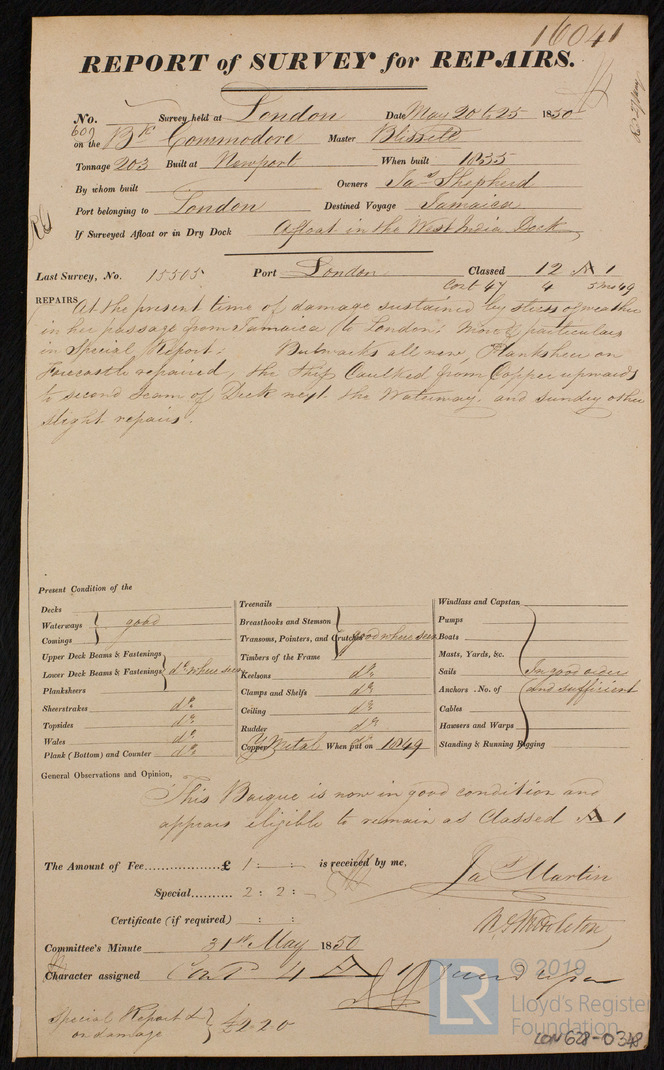 16041
REPORT of SURVEY for REPAIRS.
No. 609 Survey held at London Date May 20 to 25 1850
on the Bk Commodore Master Blissett
Tonnage 203 Built at Newport When built 1835
By whom built Owners Jas Shepherd
Port belonging to London Destined Voyage Jamaica
If Surveyed Afloat or in Dry Dock Afloat in the West India Dock
Last Survey, No. 15505 Port London Classed 12 A 1
Cont 47 4 5mo 49
REPAIRS At the present time of damage sustained by stress of weather
in her passage from Jamaica to London: More particulars
in Special Report. Bulwarks all new, Planksheer on
Forecastle repaired, the Ship Caulked from Copper upwards
to second seam of Deck next the Waterway, and sundry other
slight repairs.
Present Condition of the
Decks
Waterways good
Comings
Upper Deck Beams & Fastenings
Lower Deck Beams & Fastenings do where seen
Planksheers
Sheerstrakes do
Topsides do
Wales do
Plank (Bottom) and Counter do
Treenails
Breasthooks and Stemson
Transoms, Pointers, and Crutches good where seen
Timbers of the Frame
Keelsons do
Clamps and Shelfs do
Ceiling do
Rudder do
Copper Y Metal When put on 1849
Windlass and Capstan
Pumps
Boats
Masts, Yards, &c.
Sails In good order
Anchors . No. of and sufficient
Cables
Hawsers and Warps
Standing & Running Rigging
General Observations and Opinion,
This Barque is now in good condition and
appears eligible to remain as Classed A 1
The Amount of Fee................£ 1 : : is received by me,
Special.......... 2 : 2 : Jas Martin
Certificate (if required) : :
Committee's Minute 31st May 1850
Character assigned Cont 4 A 1
Special Report &
on damage } £2.2.0
© 2019
LR
Lloyd's Register
Foundation
LON628-0348